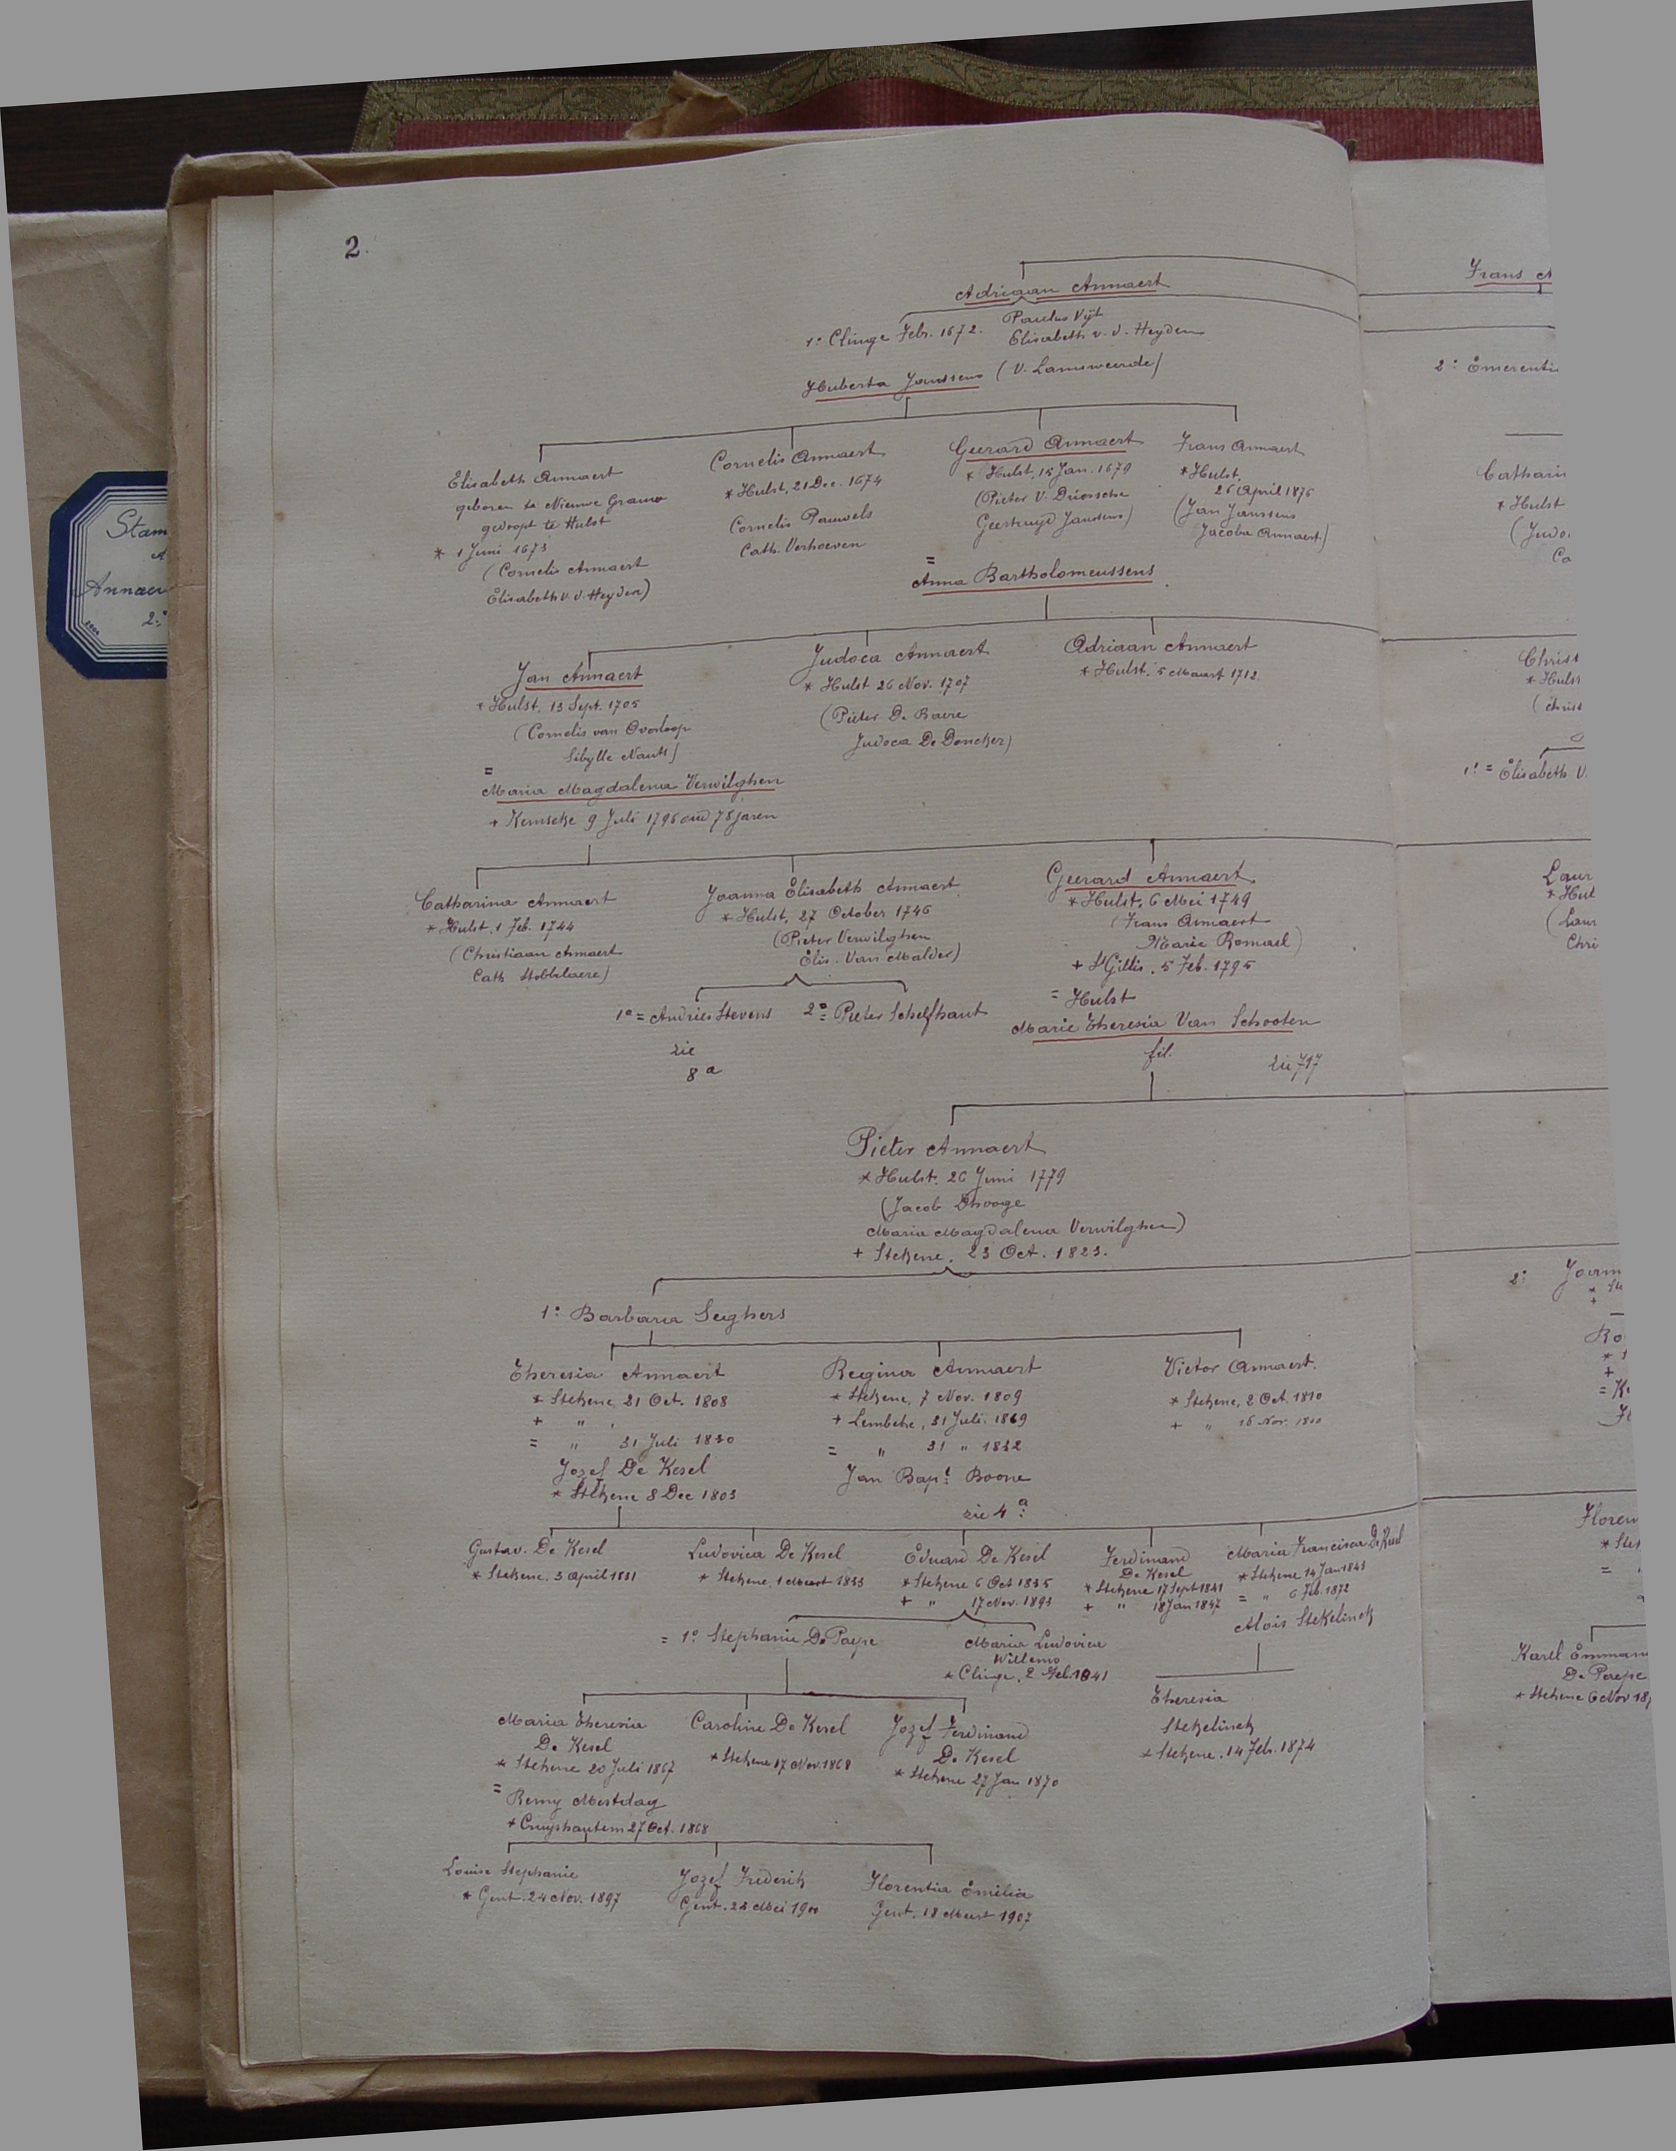 2.
Adriaan Annaert
1º Clinge Febr. 1672.
Paulus Vijt
Elisabeth v. d. Heyden
Huberta Janssens (V. Lamsweerde)
Elisabeth Annaert
geboren te Nieuwe Grauw
gedoopt te Hulst
* 1 Juni 1673
(Cornelis Annaert
Elisabeth v. d. Heyden)
Cornelis Annaert
* Hulst, 21 Dec. 1674
Cornelis Pauwels
Cath. Verhoeven
Geerard Annaert
* Hulst, 15 Jan. 1679
(Pieter V. Driessche
Geertruyd Janssens)
=
Anna Bartholomeussens
Frans Annaert
* Hulst,
26 April 1876
(Jan Janssens
Jacoba Annaert)
Jan Annaert
* Hulst, 13 Sept. 1705
(Cornelis van Overloop
Sibylle Nauts)
=
Maria Magdalena Verwilghen
+ Kemseke 9 Juli 1796 oud 78 jaren
Judoca Annaert
* Hulst 26 Nov. 1707
(Pieter De Baere
Judoca De Doncker)
Adriaan Annaert
* Hulst, 5 Maart 1712.
Catharina Annaert
* Hulst, 1 Feb. 1744
(Christiaan Annaert
Cath Stobbelaere)
Joanna Elisabeth Annaert
* Hulst, 27 October 1746
(Pieter Verwilghen
Elis. Van Malder)
1º = Andries Stevens 2º = Pieter Schelfhaut
zie
8 a
Geerard Annaert
* Hulst, 6 Mei 1749
(Frans Annaert
Marie Romael)
+ St Gillis, 5 Feb. 1795
= Hulst
Marie Theresia Van Schooten
fil. zie 717
Pieter Annaert
* Hulst, 26 Juni 1779
(Jacob Dhooge
Maria Magdalena Verwilghen)
+ Stekene, 23 Oct. 1823.
1º Barbara Seghers
Theresia Annaert
* Stekene, 21 Oct. 1808
+ "
= " 31 Juli 1830
Jozef De Kesel
* Stekene 8 Dec 1803
Regina Annaert
* Stekene, 7 Nov. 1809
+ Lembeke, 31 Juli. 1869
= " 31 " 1832
Jan Bapt. Boone
zie 4 a
Victor Annaert.
* Stekene, 2 Oct. 1810
+ " 16 Nov. 1810
Gustav. De Kesel
* Stekene, 3 April 1831
Ludovica De Kesel
* Stekene, 1 Maart 1833
Eduard De Kesel
* Stekene 6 Oct 1835
+ " 17 Nov. 1893
Ferdinand
De Kesel
* Stekene 17 Sept 1841
+ " 18 Jan 1847
Maria Francisca De Kesel
* Stekene 14 Jan 1843
= " 6 Feb. 1872
Alois Stekelinck
= 1º Stephanie De Paepe
Maria Ludovica
Willems
* Clinge, 2 Feb. 1841
Theresia
Stekelinck
* Stekene, 14 Febr. 1874
Maria Theresia
De Kesel
* Stekene 20 Juli 1867
=
Remy Mestdag
+ Cruyshautem 27 Oct. 1868
Caroline De Kesel
* Stekene 17 Nov. 1868
Jozef Ferdinand
De Kesel
* Stekene 27 Jan 1870
Louise Stephanie
* Gent. 24 Nov. 1897
Jozef Frederik
Gent. 28 Mei 1900
Florentia Emilia
Gent. 18 Maart 1907
Stam
Annaer
2º
Frans A
2º Emerenti
Catharin
* Hulst
(Judo
Ca
Christ
* Hulst
(Christ
1º = Elisabeth V.
Laur
* Hul
(Laur
Chri
2º Joann
* St
+
Ro
* 1
+
Floren
* Ste
=
Karel Emman
De Paepe
* Stekene 6 Nov 18